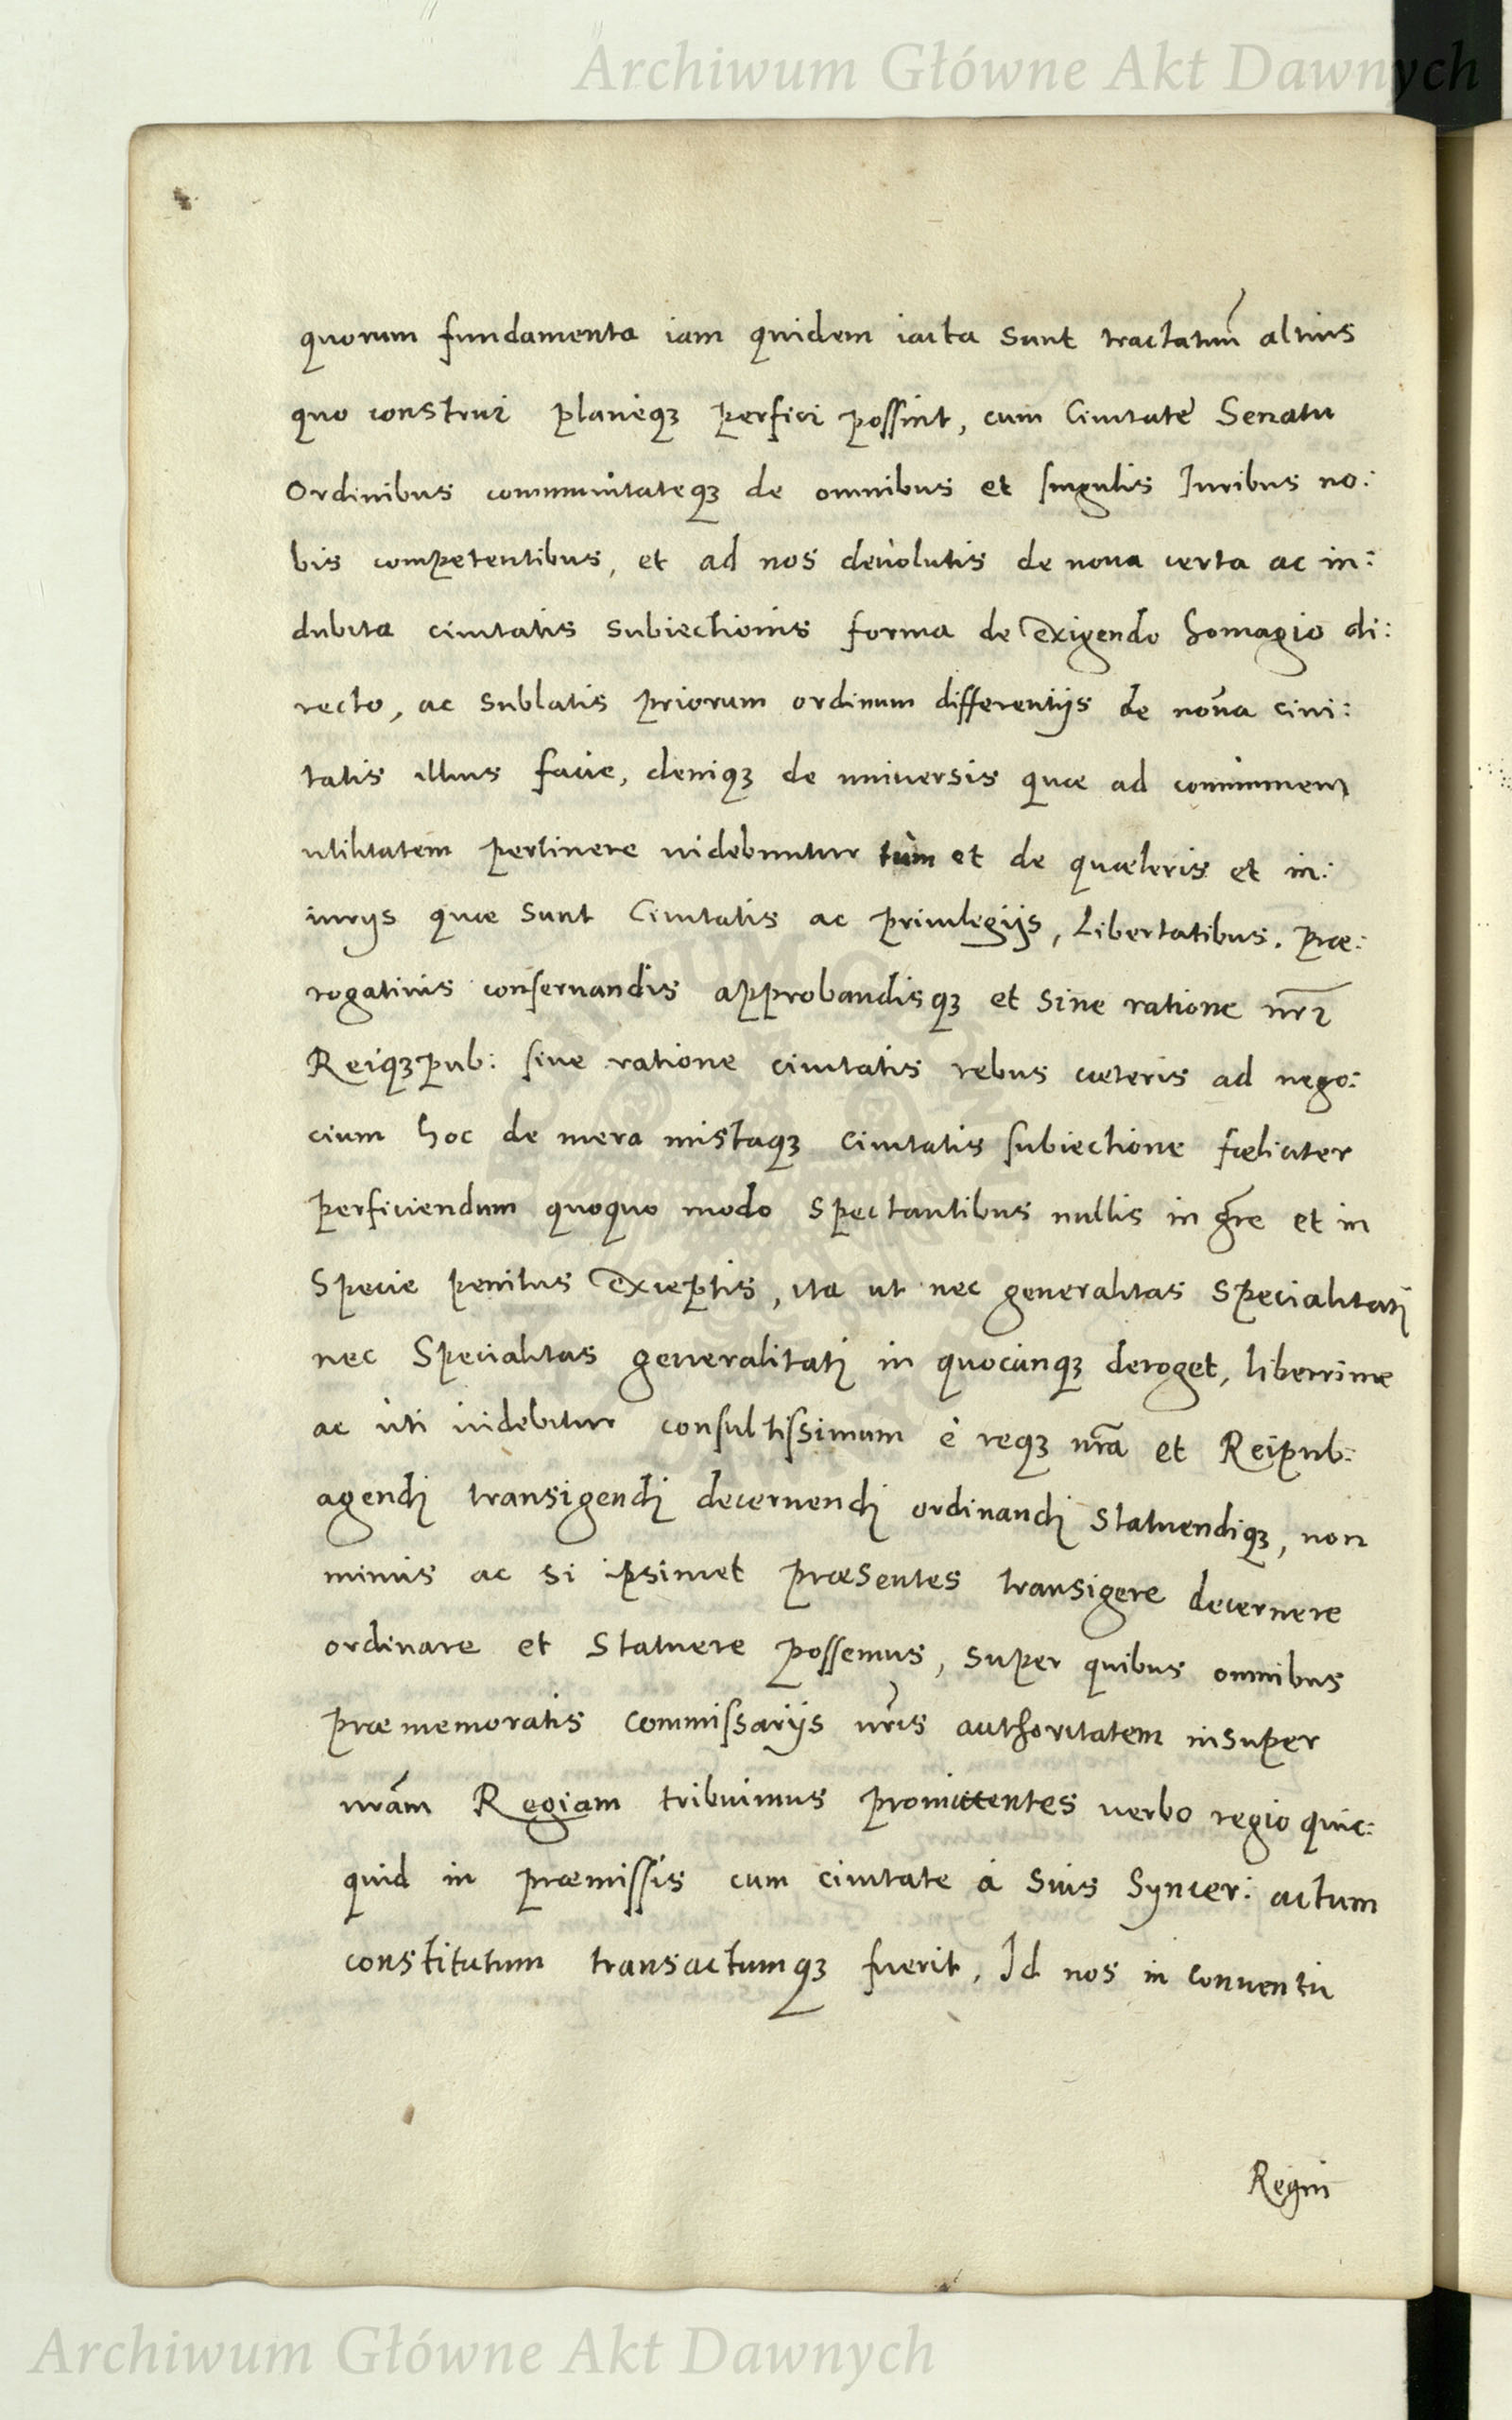 Archiwum Główne Akt Dawnych
quorum fundamenta iam quidem iacta sunt tractatuum altius
quo construi planeqȝ perfici possint, cum Ciuitate Senatu
Ordinibus communitateqȝ de omnibus et singulis Iuribus no:
bis competentibus, et ad nos deuolutis de noua certa ac in:
dubita ciuitatis subiectionis forma de exigendo homagio di:
recto, ac sublatis priorum ordinum differentijs de noua ciui:
tatis illius facie, deniqȝ de uniuersis quae ad communem
utilitatem pertinere uidebuntur tum et de quaeteris et in:
iurijs quae sunt Ciuitatis ac priuilegijs, Libertatibus. prae:
rogatiuis conseruandis approbandisqȝ et siue ratione nr̃i
Reiqȝpub: siue ratione ciuitatis rebus caeteris ad nego:
cium hoc de mera mistaqȝ ciuitatis subiectione faeliciter
perficiendum quoquo modo spectantibus nullis in gñre et in
specie penitus exceptis, ita ut nec generalitas specialitati
nec specialitas generalitati in quocunqȝ deroget, liberrime
ac uti uidebitur consultissimum è reqȝ nr̃a et Reipub:
agendi transigendi decernendi ordinandi statuendiqȝ, non
minus ac si ipsimet praesentes transigere decernere
ordinare et statuere possemus, super quibus omnibus
praememoratis commissarijs nr̃is authoritatem insuper
nr̃am Regiam tribuimus promittentes uerbo regio quic:
quid in praemissis cum ciuitate à suis Syncer: actum
constitutum transactumqȝ fuerit, Id nos in conuentu
Regni
Archiwum Główne Akt Dawnych